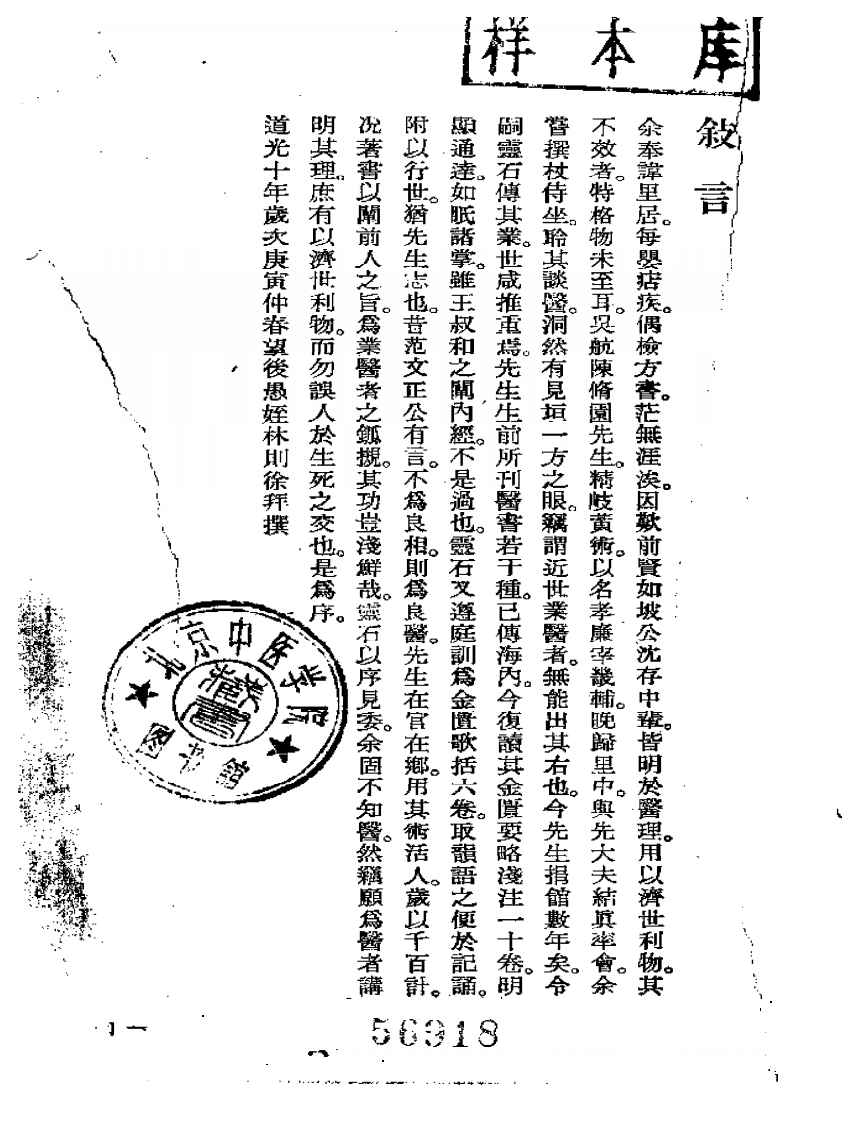 样本库
敍言
余奉諱里居。每嬰痁疾。偶檢方書。茫無涯涘。因歎前賢如坡公沈存中輩。皆明於醫理。用以濟世利物。其
不效者。特格物未至耳。吳航陳脩園先生。精岐黃術。以名孝廉宰畿輔。晚歸里中。與先大夫結眞率會。余
嘗撰杖侍坐。聆其談醫。洞然有見垣一方之眼。竊謂近世業醫者。無能出其右也。今先生捐館數年矣。令
嗣靈石傳其業。世咸推重焉。先生生前所刊醫書若干種。已傳海內。今復讀其金匱要略淺注一十卷。明
顯通達。如眡諸掌。雖王叔和之闡內經。不是過也。靈石又遵庭訓爲金匱歌括六卷。取韻語之便於記誦。
附以行世。猶先生志也。昔范文正公有言。不爲良相。則爲良醫。先生在官在鄉。用其術活人。歲以千百計。
况著書以闡前人之旨。爲業醫者之鈲摫。其功豈淺鮮哉。靈石以序見委。余固不知醫。然竊願爲醫者講
明其理。庶有以濟世利物。而勿誤人於生死之交也。是爲序。
道光十年歲次庚寅仲春望後愚姪林則徐拜撰
北京中医学院
图书馆
一
56918